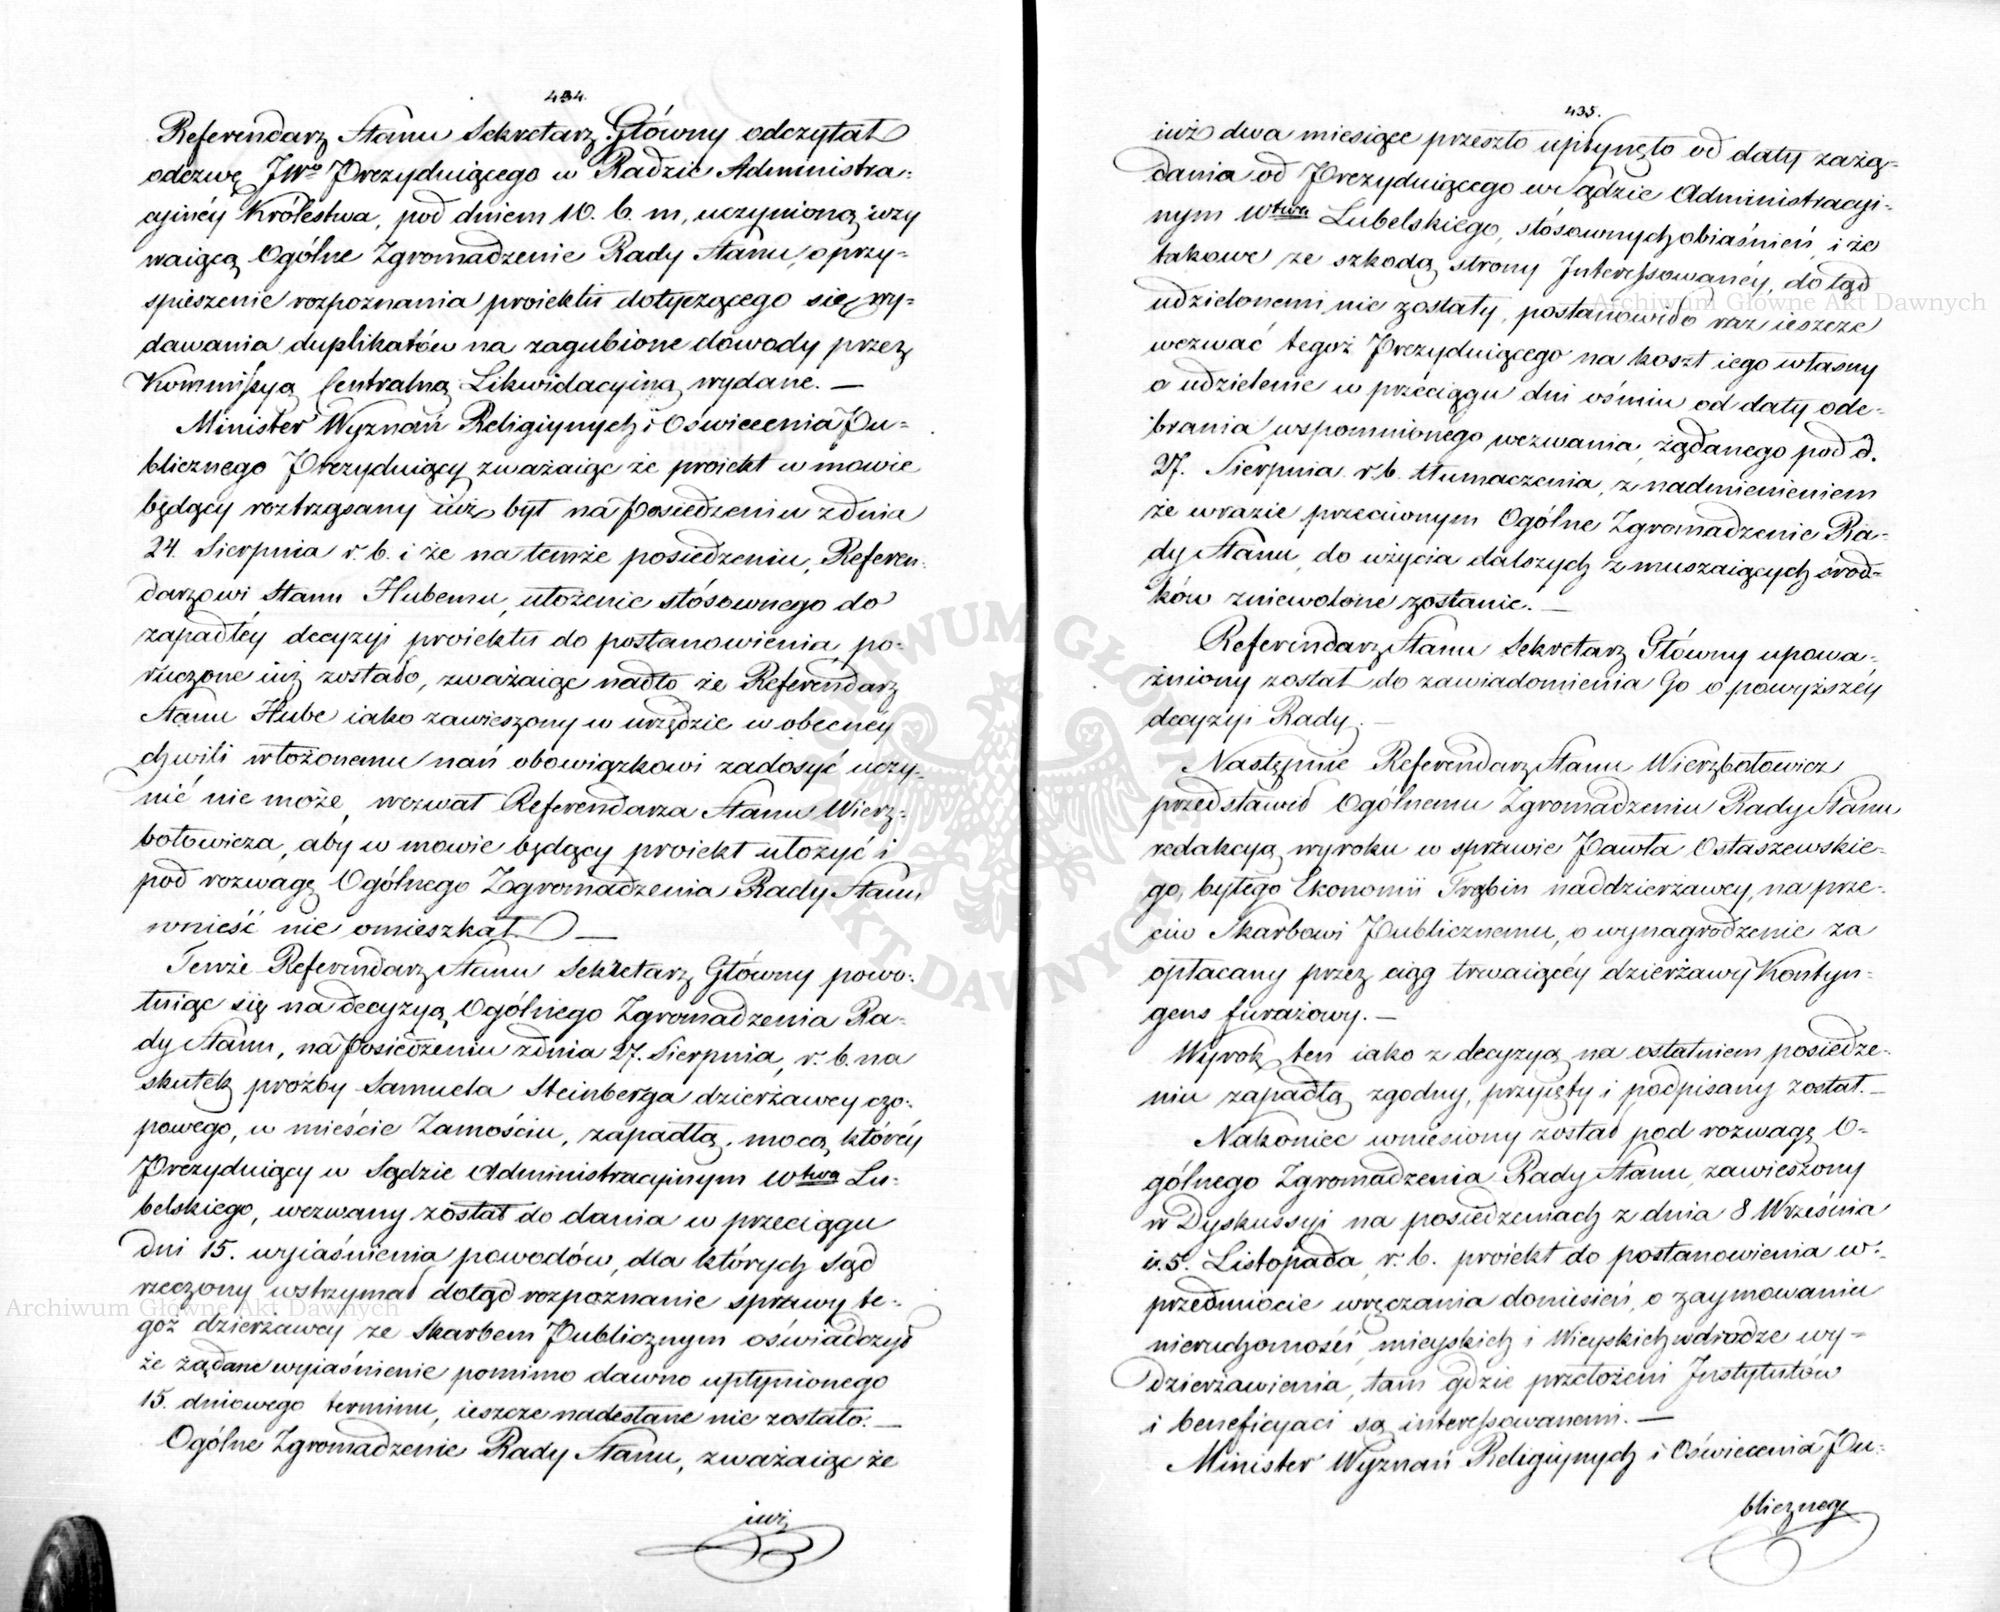 434.
Referendarz Stanu Sekretarz Główny odczytał
odezwę JWgo Prezyduiącego w Radzie Administra=
cyinéy Królestwa, pod dniem 10. b. m, uczynioną wzy
waiącą Ogólne Zgromadzenie Rady Stanu, o przy=
spieszenie rozpoznania proiektu dotyczącego się wy=
dawania duplikatów na zagubione dowody przez
Kommissyą Centralną Likwidacyiną wydane. —
Minister Wyznań Religiynych i Oświecenia Pu=
blicznego Prezyduiący zważaiąc że proiekt w mowie
będący roztrząsany iuż był na Posiedzeniu z dnia
24. Sierpnia r. b. i że na temże posiedzeniu, Referen=
darzowi Stanu Hubemu, ułożenie stósownego do
zapadłéy decyzyi proiektu do postanowienia, po=
ruczone iuż zostało, zważaiąc nadto że Referendarz
Stanu Hube iako zawieszony w urzędzie w obecnéy
chwili włożonemu nań obowiązkowi zadosyć uczy=
nić nie może, wezwał Referendarza Stanu Wierz=
bołowicza, aby w mowie będący proiekt ułożyć i
pod rozwagę Ogólnego Zgromadzenia Rady Stanu
wnieść nie omieszkał. —
Tenże Referendarz Stanu Sekretarz Główny powo=
łuiąc się na decyzyą Ogólnego Zgromadzenia Ra=
dy Stanu, na Posiedzeniu z dnia 27. Sierpnia, r. b. na
skutek prośby Samuela Steinberga dzierżawcy czo=
powego, w mieście Zamościu, zapadłą, mocą któréy
Prezyduiący w Sądzie Administracyinym Wtwa Lu=
belskiego, wezwany został do dania w przeciągu
dni 15. wyiaśnienia powodów, dla których Sąd
rzeczony wstrzymał dotąd rozpoznanie sprawy te=
goż dzierżawcy ze Skarbem Publicznym oświadczył
że żądane wyiaśnienie pomimo dawno upłynionego
15. dniowego terminu, ieszcze nadesłane nie zostało. —
Ogólne Zgromadzenie Rady Stanu, zważaiąc że
iuż
435.
iuż dwa miesiące przeszło upłynęło od daty zażą=
dania od Prezyduiącego w Sądzie Administracyi=
nym Wtwa Lubelskiego, stósownych obiaśnień, i że
takowe ze szkodą strony Interessowanéy, dotąd
udzielonemi nie zostały, postanowiło raz ieszcze
wezwać tegoż Prezyduiącego na koszt iego własny
o udzielenie w przeciągu dni ośmiu od daty ode=
brania wspomnionego wezwania, żądanego pod d.
27. Sierpnia r. b. tłumaczenia, z nadmienieniem
że w razie przeciwnym Ogólne Zgromadzenie Ra=
dy Stanu, do użycia dalszych zmuszaiących środ=
ków zniewolone zostanie. —
Referendarz Stanu Sekretarz Główny upowa=
żniony został do zawiadomienia Go o powyższéy
decyzyi Rady. —
Następnie Referendarz Stanu Wierzbołowicz
przedstawił Ogólnemu Zgromadzeniu Rady Stanu
redakcyą wyroku w sprawie Pawła Ostaszewskie=
go, byłego Ekonomii Trąbin naddzierżawcy, na prze=
ciw Skarbowi Publicznemu, o wynagrodzenie za
opłacany przez ciąg trwaiącéy dzierżawy Kontyn=
gens furażowy. —
Wyrok ten iako z decyzyą na ostatniem posiedze=
niu zapadłą zgodny, przyięty i podpisany został. —
Nakoniec wniesiony został pod rozwagę O=
gólnego Zgromadzenia Rady Stanu, zawieszony
w Dyskussyi na posiedzeniach z dnia 8 Września
i 5. Listopada, r. b. proiekt do postanowienia w
przedmiocie wręczania doniesień, o zaymowaniu
nieruchomości mieyskich i Wieyskich w drodze wy=
dzierżawienia, tam gdzie przełożeni Instytutów
i beneficyaci są interessowanemi. —
Minister Wyznań Religiynych i Oświecenia Pu=
blicznego
Archiwum Główne Akt Dawnych
Archiwum Główne Akt Dawnych
ARCHIWUM GŁÓWNE AKT DAWNYCH